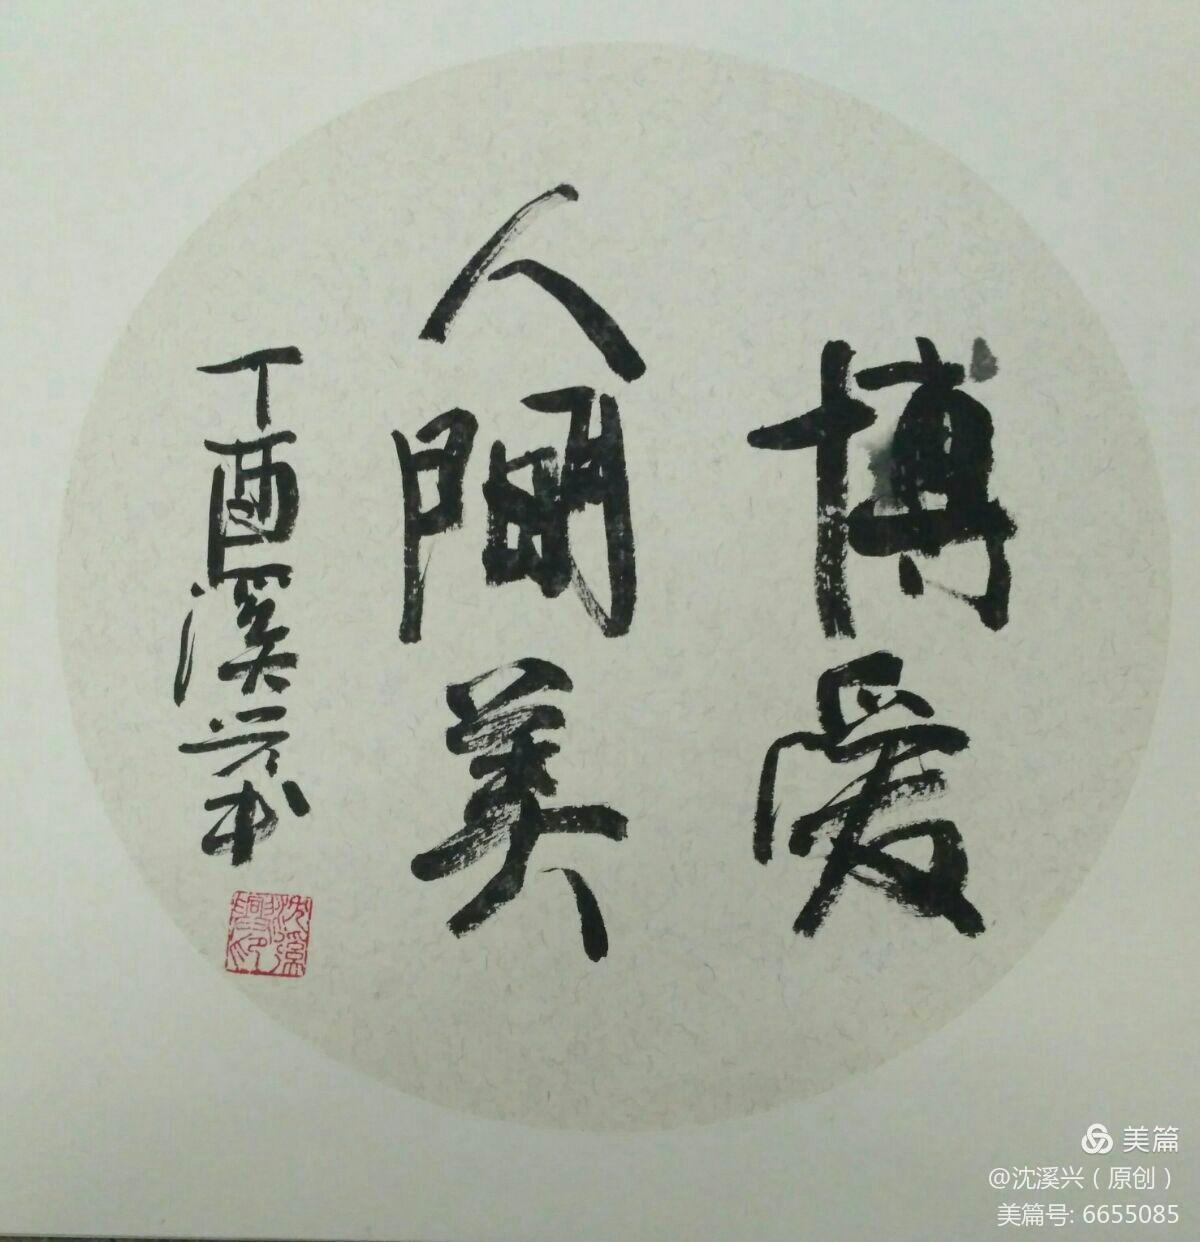 博爱
人間美
丁酉溪兴书
沈溪兴印
美篇
@沈溪兴（原创）
美篇号: 6655085